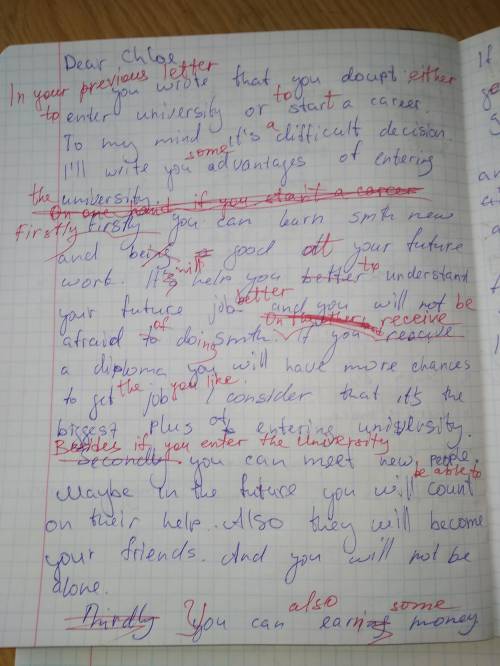 Dear Chloe,
In your previous letter
you wrote that you doupt either
to enter university or to start a career.
To my mind it's a difficult decision.
some
I'll write you advantages of entering
the university.
On one hand if you start a career
Firstly Firstly you can learn smth new
and being good at your future
work. It's will help you better to understand
your future job better and you will not be
On the other receive
afraid to of doing smth. If you receive
a diploma you will have more chances
to get the job you like. I consider that it's the
biggest plus of entering university.
Besides if you enter the University
Secondly you can meet new people.
be able to
Maybe in the future you will count
on their help. Also they will become
your friends. And you will not be
alone.
also some
Thirdly You can earning money
If